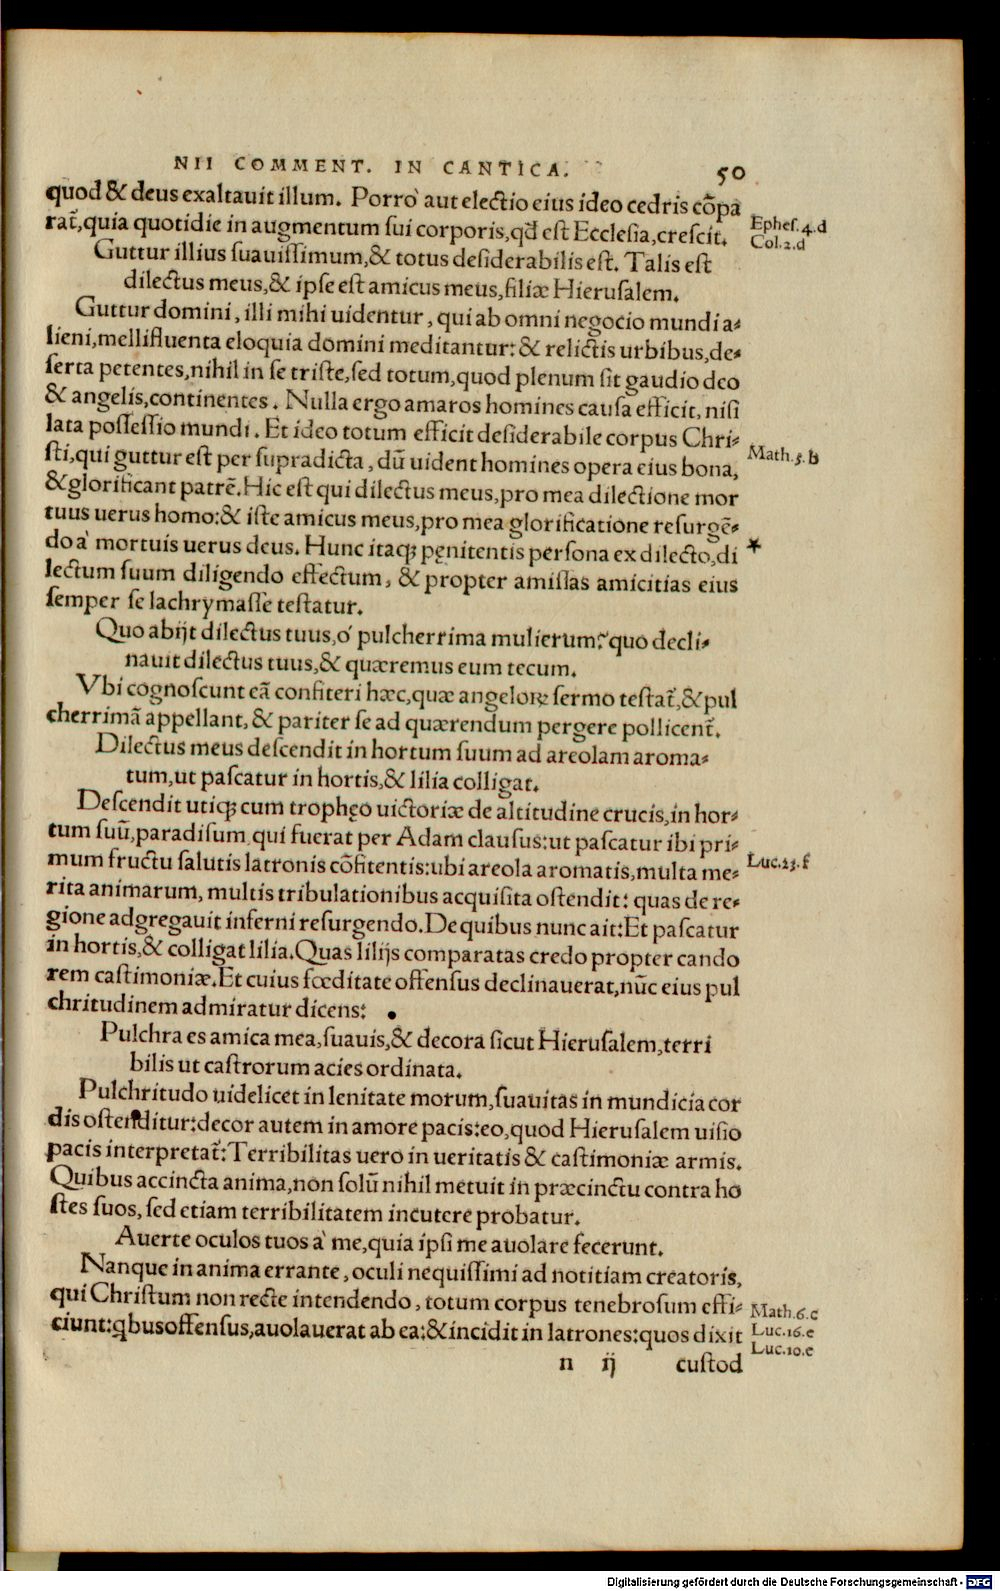 NII COMMENT. IN CANTICA. 50
quod & deus exaltauit illum. Porrò aut electio eius ideo cedris cõpa
rat̃, quia quotidie in augmentum sui corporis, qd̃ est Ecclesia, crescit. Ephes.4.d
Col.2.d
Guttur illius suauissimum, & totus desiderabilis est. Talis est
dilectus meus, & ipse est amicus meus, filiæ Hierusalem.
Guttur domini, illi mihi uidentur, qui ab omni negocio mundi a-
lieni, melliflluenta eloquia domini meditantur: & relictis urbibus, de-
serta petentes, nihil in se triste, sed totum, quod plenum sit gaudio deo
& angelis, continentes. Nulla ergo amaros homines causa efficit, nisi
lata possessio mundi. Et ideo totum efficit desiderabile corpus Chri-
sti, qui guttur est per supradicta, dũ uident homines opera eius bona, Math.5.b
& glorificant patrẽ. Hic est qui dilectus meus, pro mea dilectione mor
tuus uerus homo: & iste amicus meus, pro mea glorificatione resurgẽ-
do à mortuis uerus deus. Hunc itaq; pęnitentis persona ex dilecto, di *
lectum suum diligendo effectum, & propter amissas amicitias eius
semper se lachrymasse testatur.
Quo abijt dilectus tuus, ó pulcherrima mulierum? quo decli-
nauit dilectus tuus, & quæremus eum tecum.
Vbi cognoscunt eã confiteri hæc, quæ angeloꝝ sermo testat̃, & pul
cherrimã appellant, & pariter se ad quærendum pergere pollicent̃.
Dilectus meus descendit in hortum suum ad areolam aroma-
tum, ut pascatur in hortis, & lilia colligat.
Descendit utiq; cum trophęo uictoriæ de altitudine crucis, in hor-
tum suũ, paradisum, qui fuerat per Adam clausus: ut pascatur ibi pri-
mum fructu salutis latronis cõfitentis: ubi areola aromatis, multa me- Luc.23.f
rita animarum, multis tribulationibus acquisita ostendit: quas de re-
gione adgregauit inferni resurgendo. De quibus nunc ait: Et pascatur
in hortis, & colligat lilia. Quas lilijs comparatas credo propter cando
rem castimoniæ. Et cuius fœditate offensus declinauerat, nũc eius pul
chritudinem admiratur dicens:
Pulchra es amica mea, suauis, & decora sicut Hierusalem, terri
bilis ut castrorum acies ordinata.
Pulchritudo uidelicet in lenitate morum, suauitas in mundicia cor
dis ostenditur: decor autem in amore pacis: eo, quod Hierusalem uisio
pacis interpretat̃: Terribilitas uero in ueritatis & castimoniæ armis.
Quibus accincta anima, non solũ nihil metuit in præcinctu contra ho
stes suos, sed etiam terribilitatem incutere probatur.
Auerte oculos tuos à me, quia ipsi me auolare fecerunt.
Nanque in anima errante, oculi nequissimi ad notitiam creatoris,
qui Christum non recte intendendo, totum corpus tenebrosum effi- Math.6.c
ciunt: ꝗbus offensus, auolauerat ab ea: & incidit in latrones: quos dixit Luc.16.e
Luc.10.e
n ij custod
Digitalisierung gefördert durch die Deutsche Forschungsgemeinschaft - DFG